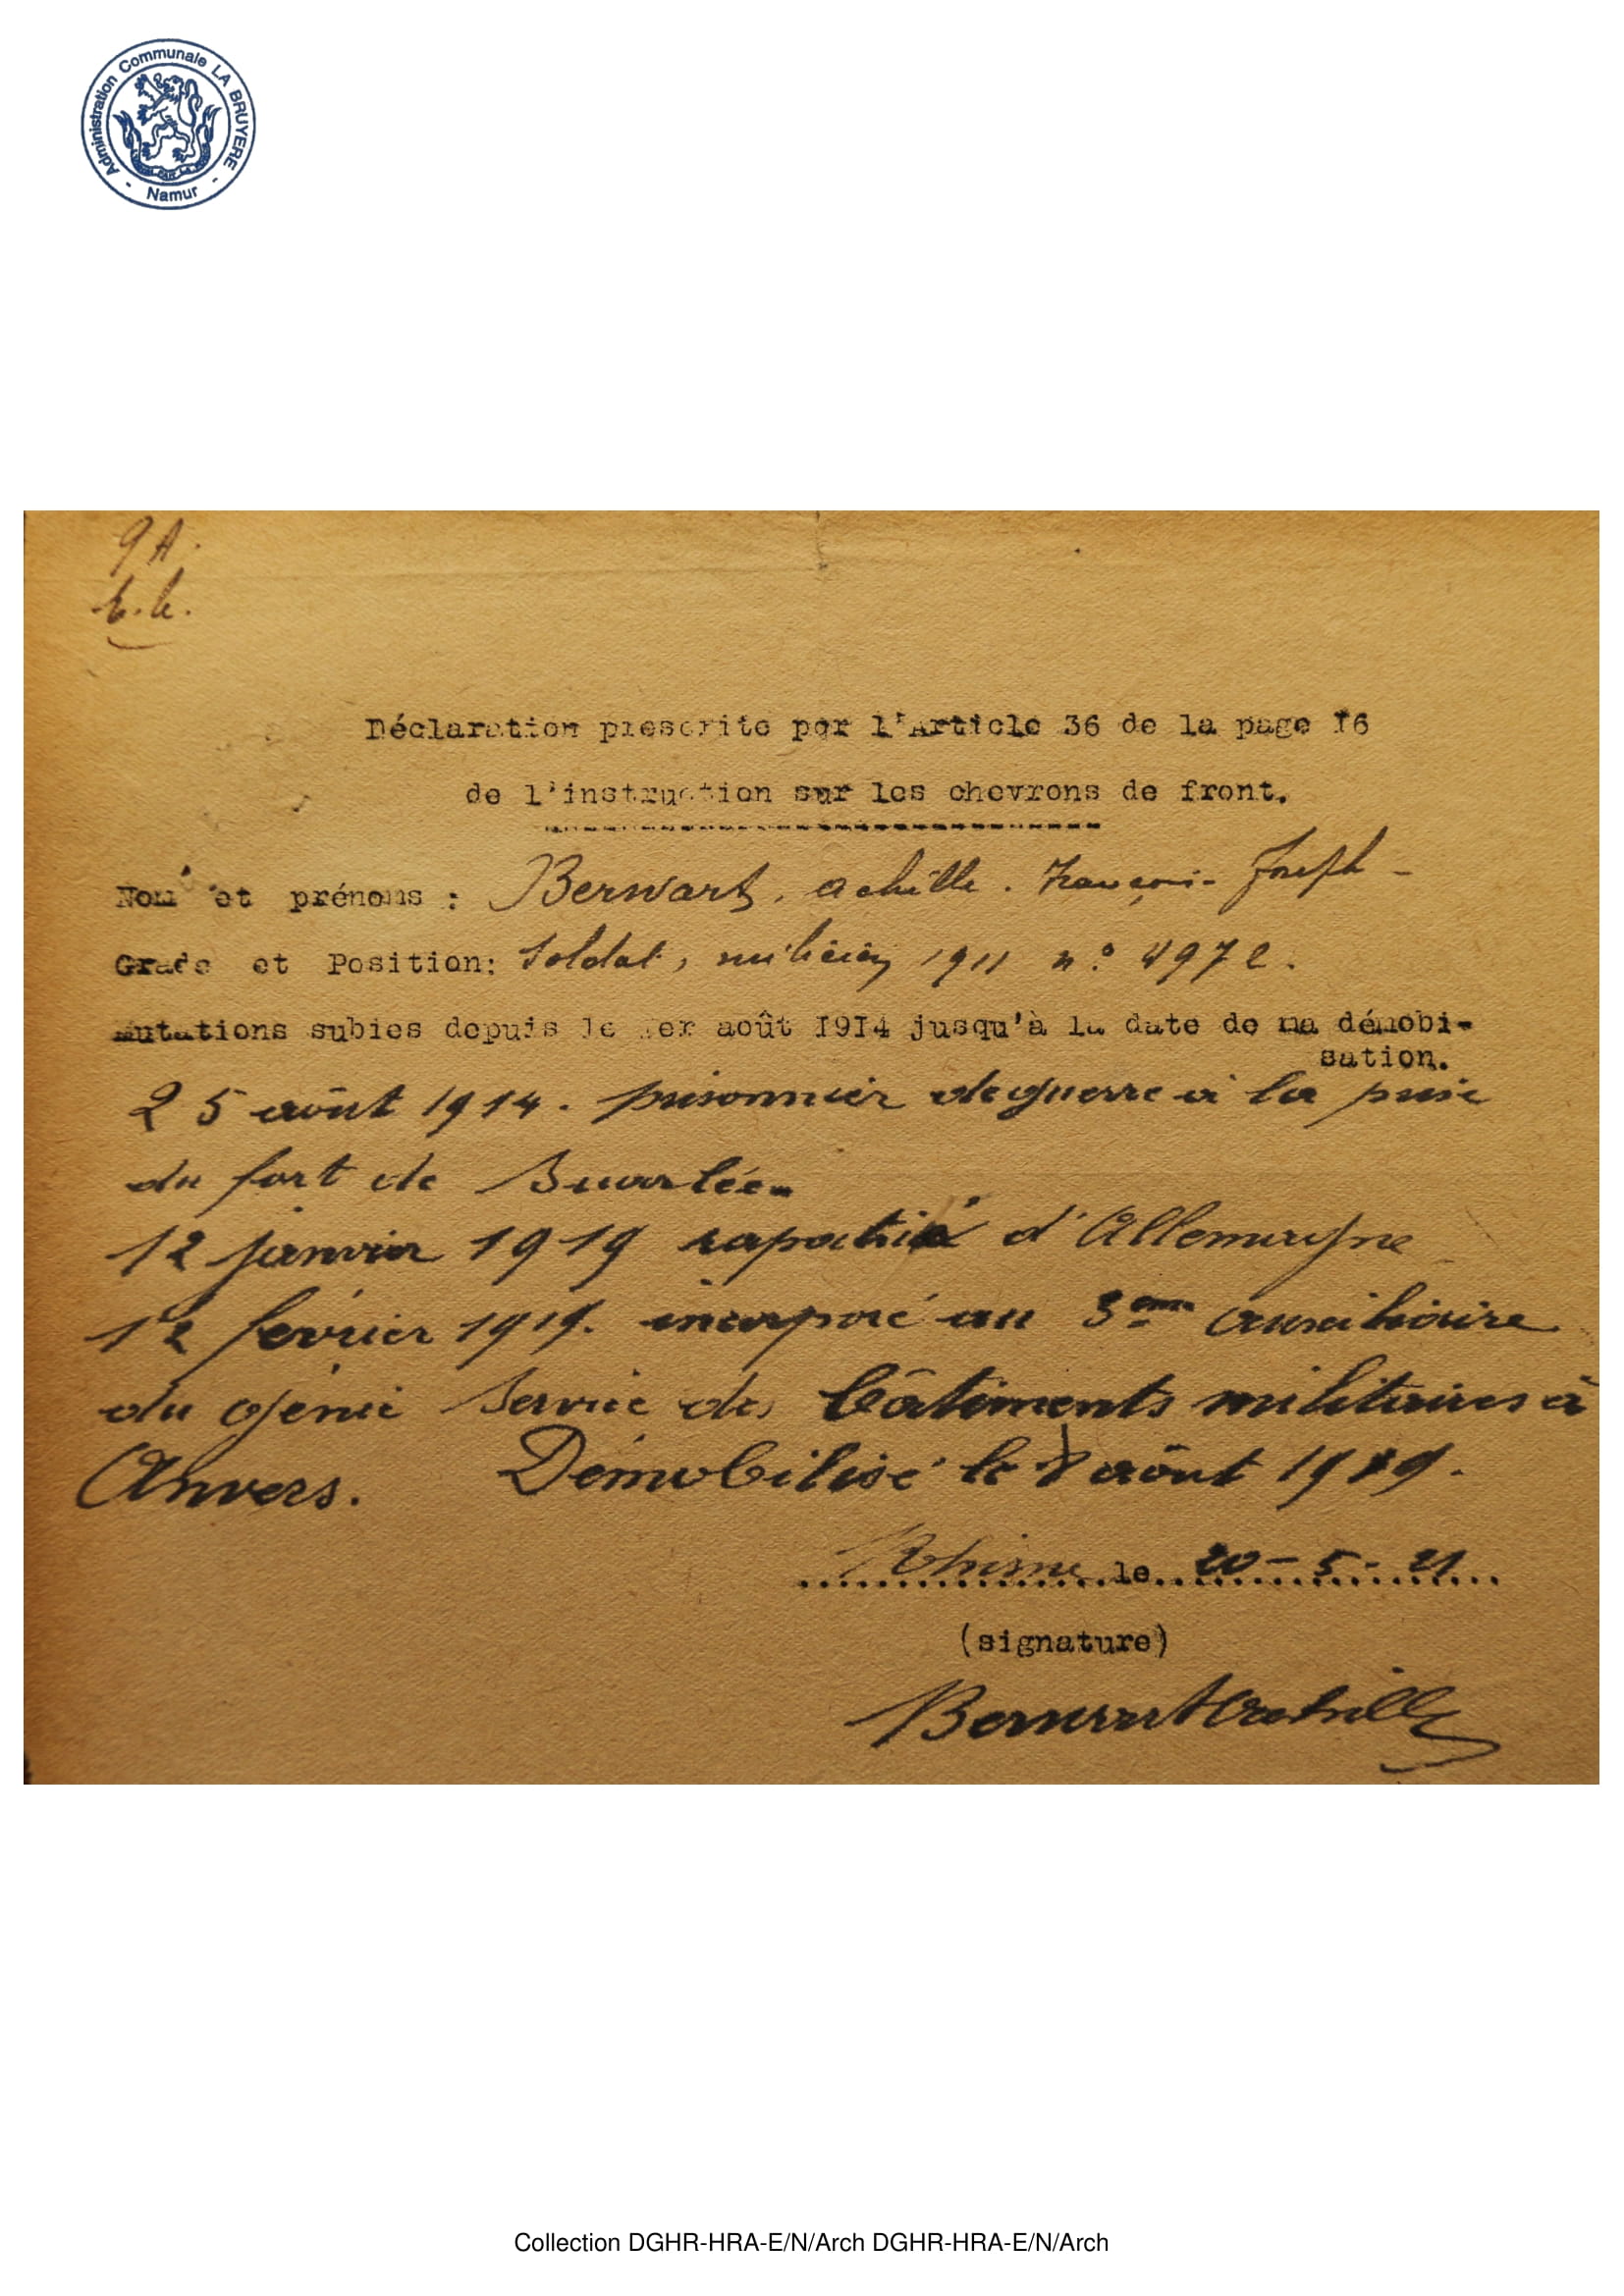 Administration Communale LA BRUYERE
- Namur -
9 A.
Déclaration prescrite par l'Article 36 de la page I6
de l'instruction sur les chevrons de front.
Nom et prénoms : Berwart, achille. François-Joseph-
Grade et Position: Soldat, milicien 1911 n.° 4972.
Mutations subies depuis le 1er août I9I4 jusqu'à la date de ma démobi-
sation.
25 août 1914. prisonnier de guerre à la prise
du fort de Suarlée.
12 janvier 1919 rapatrié d'Allemagne
12 février 1919. incorporé au 3eme auxiliaire
du génie Service des bâtiments militaires à
Anvers. Démobilisé le 8 août 1919.
Rhisne le 20-5-21
(signature)
Berwart Achille
Collection DGHR-HRA-E/N/Arch DGHR-HRA-E/N/Arch